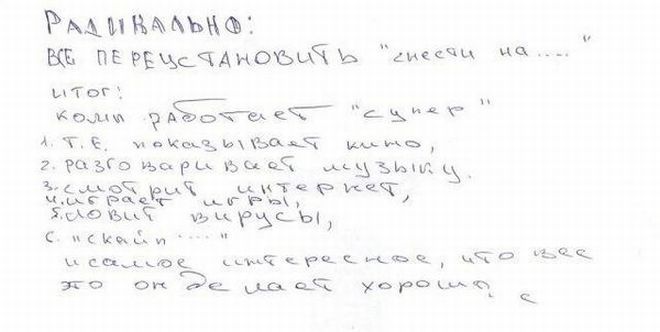 РАДИКАЛЬНО:
ВСЕ ПЕРЕУСТАНОВИТЬ "снести на...."
итог:
комп работает "супер"
1. Т.Е. показывает кино,
2. разговаривает музыку.
3. смотрит интернет,
4. играет игры,
5. ловит вирусы,
6. "скайп ...."
и самое интересное, что все
это он делает хорошо,